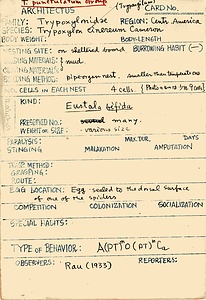 T. punctatum group
ARCHITECTUS (Trypoxylon) CARD No.
FAMILY: Trypoxylonidae REGION: Centr. America
SPECIES: Trypoxylon cinereum Cameron
BODY WEIGHT: BODY-LENGTH
NESTING SITE: on sheltered board BURROWING HABIT (—)
BUILDING MATERIALS: mud.
CLOSING MATERIALS:
BUILDING METHOD: pipe-organ nest, smaller than
NO. CELLS IN EACH NEST 4 cells.
KIND: Eustala bifida
PRESERVED NO.: many.
WEIGHT OR SIZE: various size
PARALYSIS: MAX. DUR. DAYS
STINGING MALAXATION AMPUTATION
METHOD:
GRASPING:
ROUTE:
EGG LOCATION: Egg sealed to the dorsal surface
of one of the spiders
COMPETITION COLONIZATION SOCIALIZATION
SPECIAL HABITS:
TYPE OF BEHAVIOR:
OBSERVERS: Rau (1933) REPORTERS: